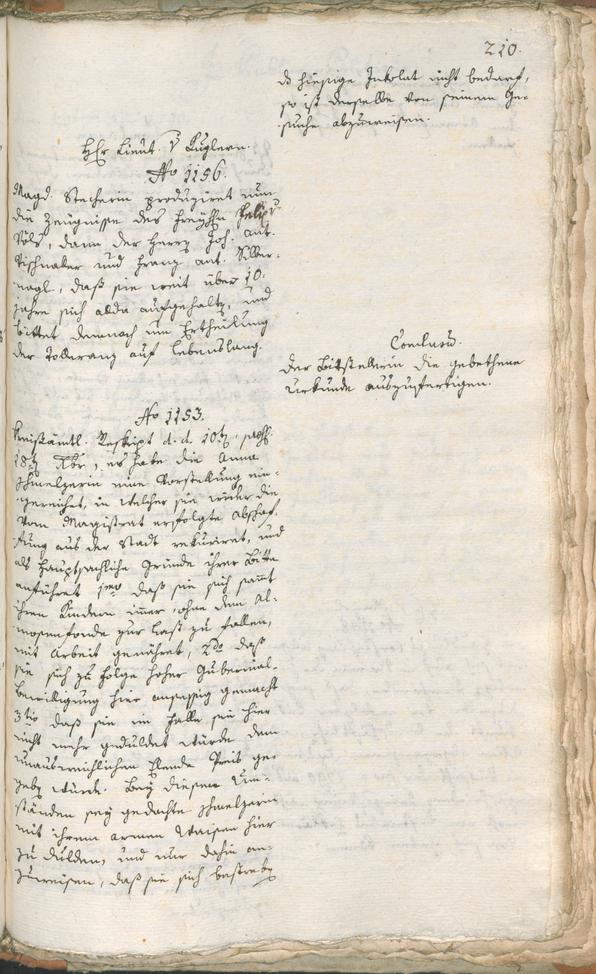 210.
ds hiesige Inkolat nicht bedarf,
so ist derselbe von seinem Ge-
suche abzuweisen.
Hr Lieut. v Kuglern.
No 1156.
Magd. Stecherin produziret nun
die Zeugnisse des Freyhhn Felix v
Völs, dann der Herrn Joh. Ant.
Tischnaler und Franz Ant. Silber-
nagl, daß sie weit über 10.
Jahre sich alda aufgehaltn, und
bittet demnach um Ertheilung
der Tolleranz auf lebenslang.
Conclusum.
der Bittstellerin die gebethene
Urkunde auszufertigen.
No 1153.
Kreisämtl. Reskript d. d. 10tn, 
18tn Xbr, es habe die Anna
Schmelzerin eine Vorstellung ein-
gereichet, in welcher sie wider die
vom Magistrat erfolgte Abschaf-
fung aus der Stadt rekuriret, und
als hauptsachliche Gründe ihrer Bitte
anführet 1mo daß sie sich samt
ihren Kindern imer ohne dem Al-
mosenfonde zur Last zu fallen,
mit Arbeit genähret, 2do daß
sie sich zu folge hoher Gubernial-
bewilligung hier ansessig gemacht
3tio daß sie im Falle sie hier
nicht mehr geduldet würde dem
unausweichlichen Elende Preis ge-
gebn würde. Bey diesen Um-
ständen sey gedachte Schmelzerin
mit ihrem armen Waisen hier
zu dulden, und nur dahin an-
zuweisen, daß sie sich bestrebe